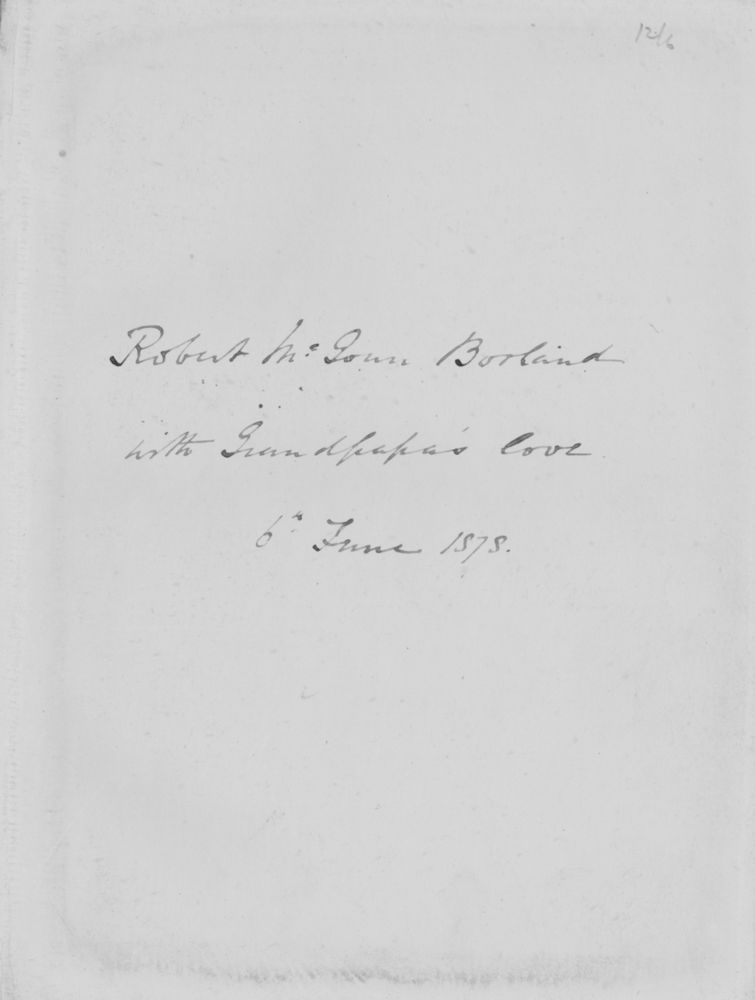 12/6
Robert Mc Goun Borland
with Grandpapa's love
6th June 1878.